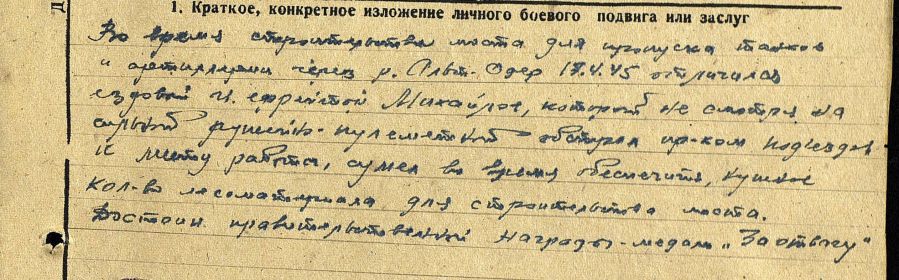 1. Краткое, конкретное изложение личного боевого подвига или заслуг
Во время строительства моста для пропуска танков
и артиллерии через р. Альт-Одер 17.4.45 отличился
ездовой ефрейтор Михайлов, который не смотря на
сильный ружейно-пулеметный обстрел пр-ком подъездов
к месту работы, сумел во время обеспечить нужное
кол-во лесоматериала для строительства моста.
Достоин правительственной награды - медаль "За отвагу"